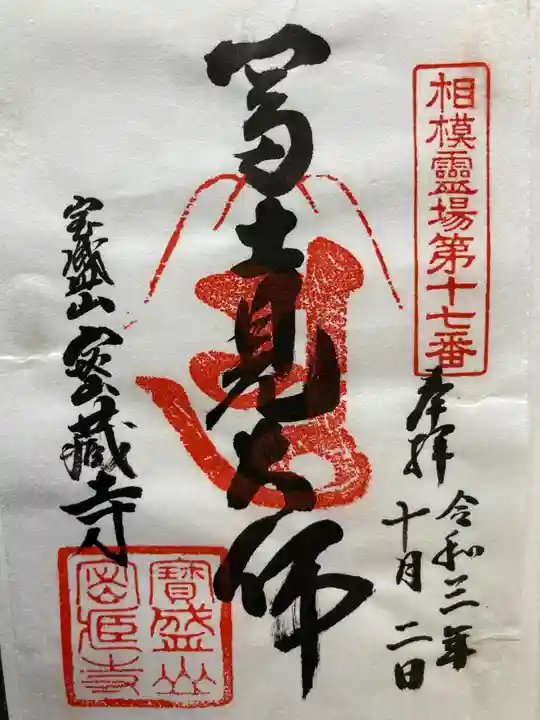 相模靈場第十七番
奉拝
令和三年
十月二日
冨士見大師
宝盛山
密蔵寺
寶盛山
密蔵寺